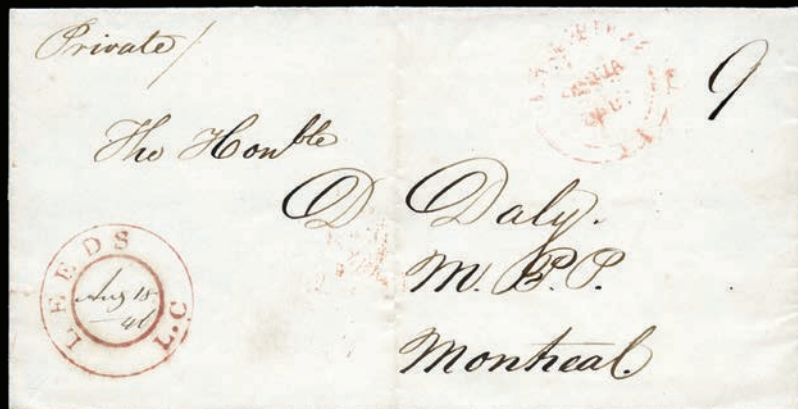 Private/
9
The Honble
D Daly.
M.P.P.
Montreal.
LEEDS
L.C
Aug 18
46